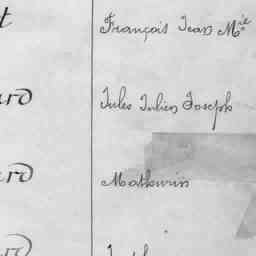 t François Jean Mie
ard Jules Julien Joseph
ard Mathurin